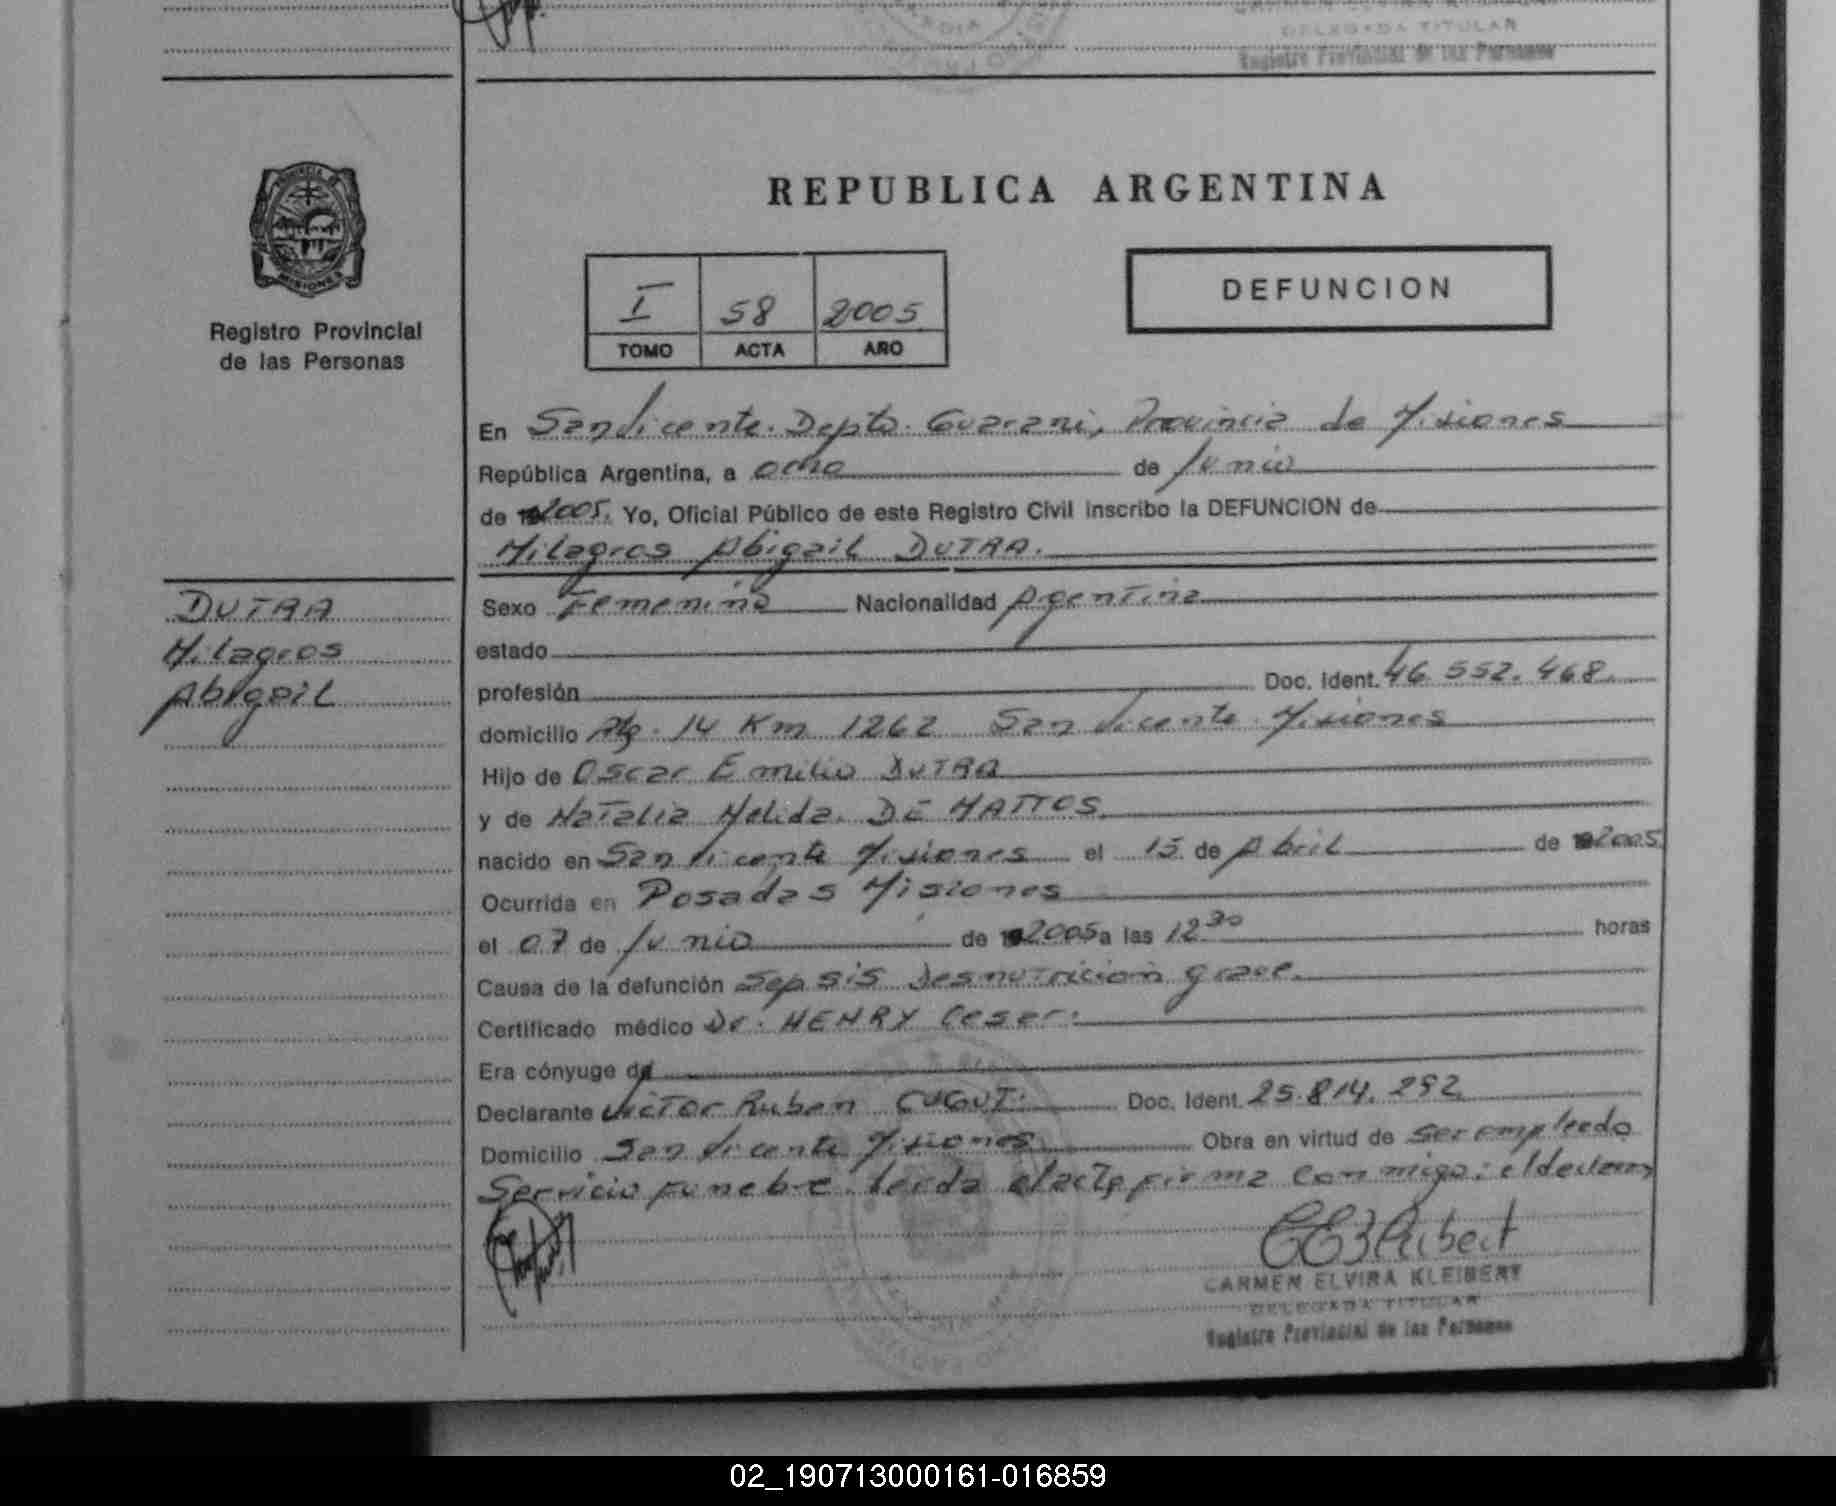 DELEGADA TITULAR
Registro Provincial de las Personas
REPUBLICA ARGENTINA
PROVINCIA DE
MISIONES
Registro Provincial
de las Personas
I 58 2005
TOMO ACTA AÑO
DEFUNCION
En San Vicente. Depto. Guarani, Provincia de Misiones
República Argentina, a ocho de Junio
de 2005. Yo, Oficial Público de este Registro Civil inscribo la DEFUNCION de
Milagros Abigail DUTRA.
DUTRA
Milagros
Abigail
Sexo Femenino Nacionalidad Argentina
estado
profesión Doc. Ident. 46.552.468.
domicilio 14 Km 1262 San Vicente Misiones
Hijo de Oscar Emilio DUTRA
y de Natalia Nelida. DE MATTOS.
nacido en San Vicente Misiones el 15 de Abril de 2005
Ocurrida en Posadas Misiones
el 07 de Junio de 2005 a las 12 30 horas
Causa de la defunción Sepsis Desnutrición grave.
Certificado médico Dr. HENRY Cesar.
Era cónyuge de
Declarante Victor Ruben CUGUI. Doc. Ident. 25.814.292
Domicilio San Vicente Misiones Obra en virtud de ser empleado
Servicio Funebre. Leida el acta, firma conmigo: el declarante
CARMEN ELVIRA KLEIBERT
DELEGADA TITULAR
Registro Provincial de las Personas
02_190713000161-016859